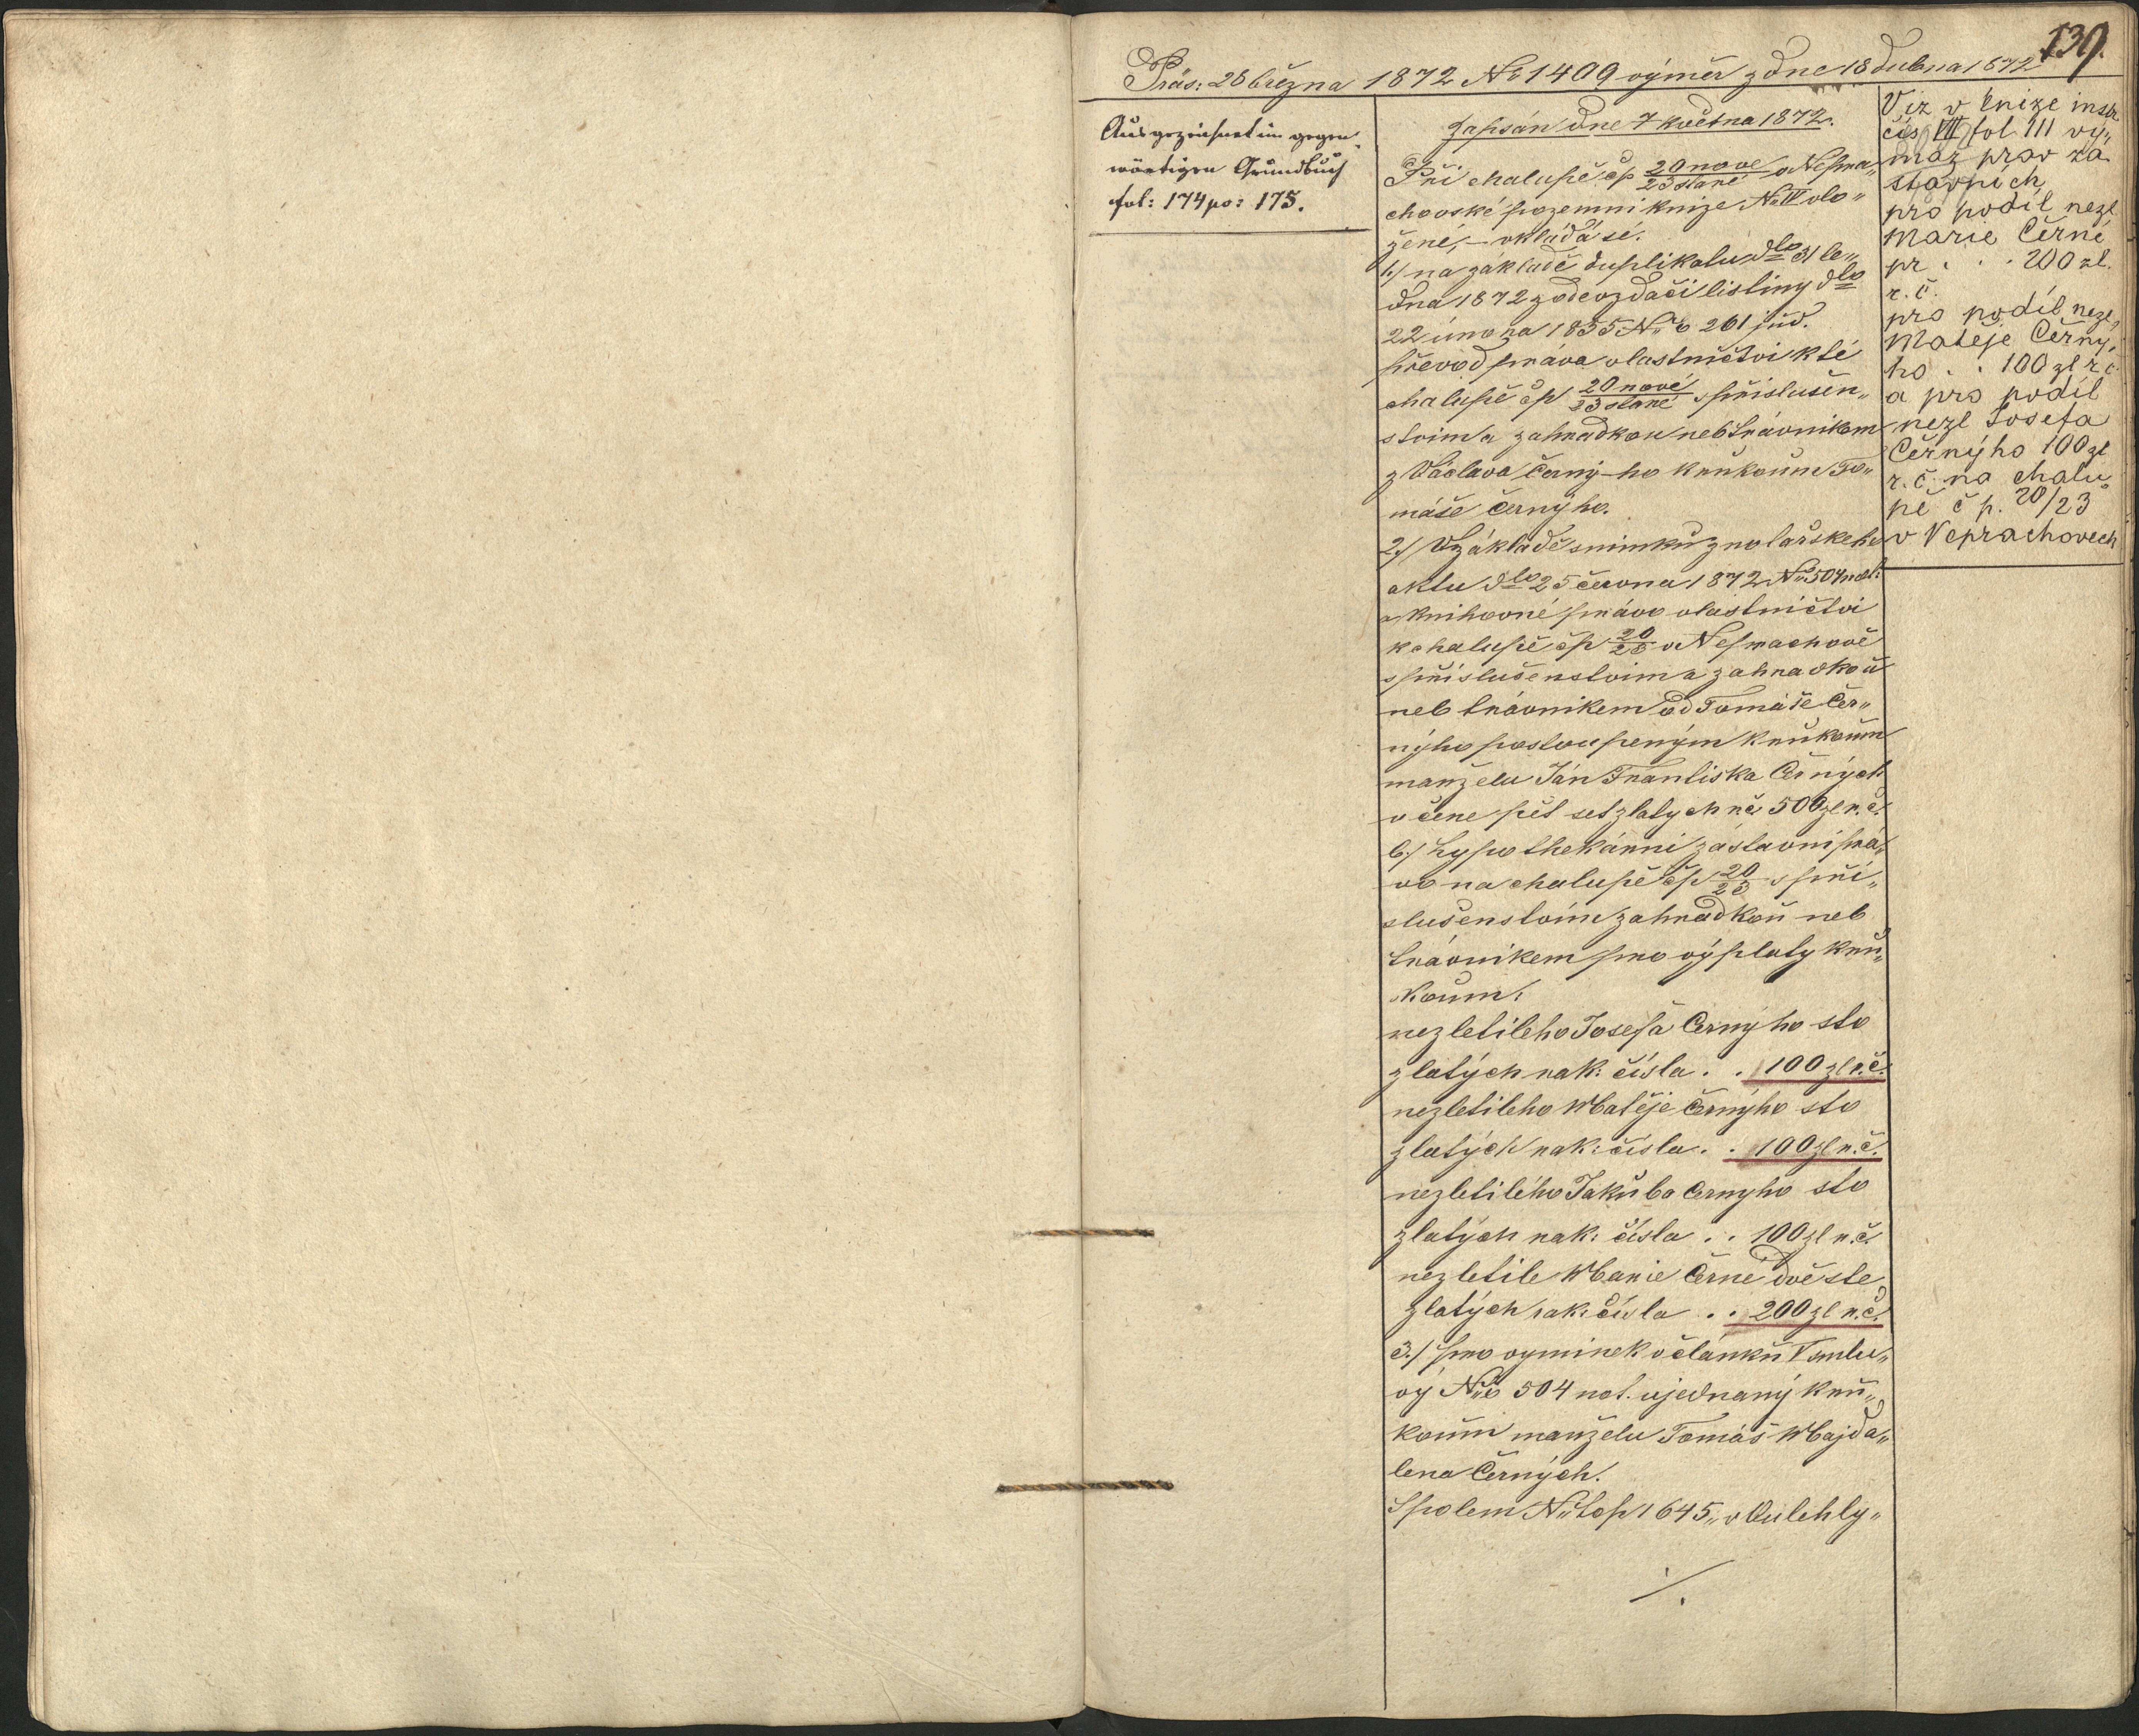 139.
Präs: 26 března 1872 No 1409 výměr z dne 18 dubna 1872
Ausgezeichnet im gegen„
wärtigen Grundbuch
fol: 174 po: 175.
Zapsán dne 7 května 1872.
Při chalupě čp 20 nove/23 staré v Nepra„
chovské pozemni knize No IV vlo„
žené, – vkládá sé.
1./ na základě duplikatu dto 31 le„
dna 1872 z odevzdači listiny dto
22 února 1855 Nro 261 jud.
převod práva vlastnictvi k té
chalupě čp 20 nové/23 staré s přislušen„
stvim a zahradkou neb trávnikem
z Václava Černý-ho k rukoum To„
máše Černýho.
2./ V základě snimku z notařskeho
aktu dto 25 června 1872 No 504 not:
a knihovné právo vlastnictvi
k chalupě čp 20/23 v Neprachově
s přislušenstvim a zahradkou
neb trávnikem od Tomáše Čer„
nýho postoupeným k rukoum
manželu Ján Frantiska Černých
v ceně pět set zlatych r.č. 500 zl r.č.
b./ hypothekárni zástavni prá„
vo na chalupě čp 20/23 s při„
slušenstvim zahradkou neb
trávnikem pro výplaty k ru„
koum:
nezletileho Josefa Černýho sto
zlatých rak: čísla . . 100 zl r.č.
nezletileho Matěje Černýho sto
zlatých rak: čísla . . 100 zl r.č.
nezletilého Jakuba Černyho sto
zlatých rak: čísla . . 100 zl r.č.
nezletile Marie Černe dvě ste
zlatých rak: čísla . . 200 zl r.č.
3./ pro vyminek v článku V smlu„
vý Nro 504 not. ujednaný k ru„
koum manželu Tomáš Majda„
lena Černých.
Spolem No top 1645 „v Oulehly„
./.
Viz v knize instr
čís VIII fol 111 vý„
maz prav zá
stavních
pro podíl nezl
Marie Černé
pr . . . 200 zl.
r. č.
pro podíl nezl„
Matěje Černý„
ho . . 100 zl r č
a pro podíl
nezl Josefa
Černýho 100 zl
r. č. na chalu„
pě č p. 20/23
v Neprachovech